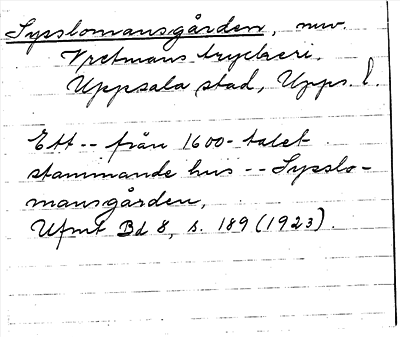 Sysslomansgården, nuv.
Vretmans tryckeri.
Uppsala stad, Upps. l.
Ett -- från 1600-talet
stammande hus -- Sysslo-
mansgården,
Ufmt Bd 8, s. 189 (1923).